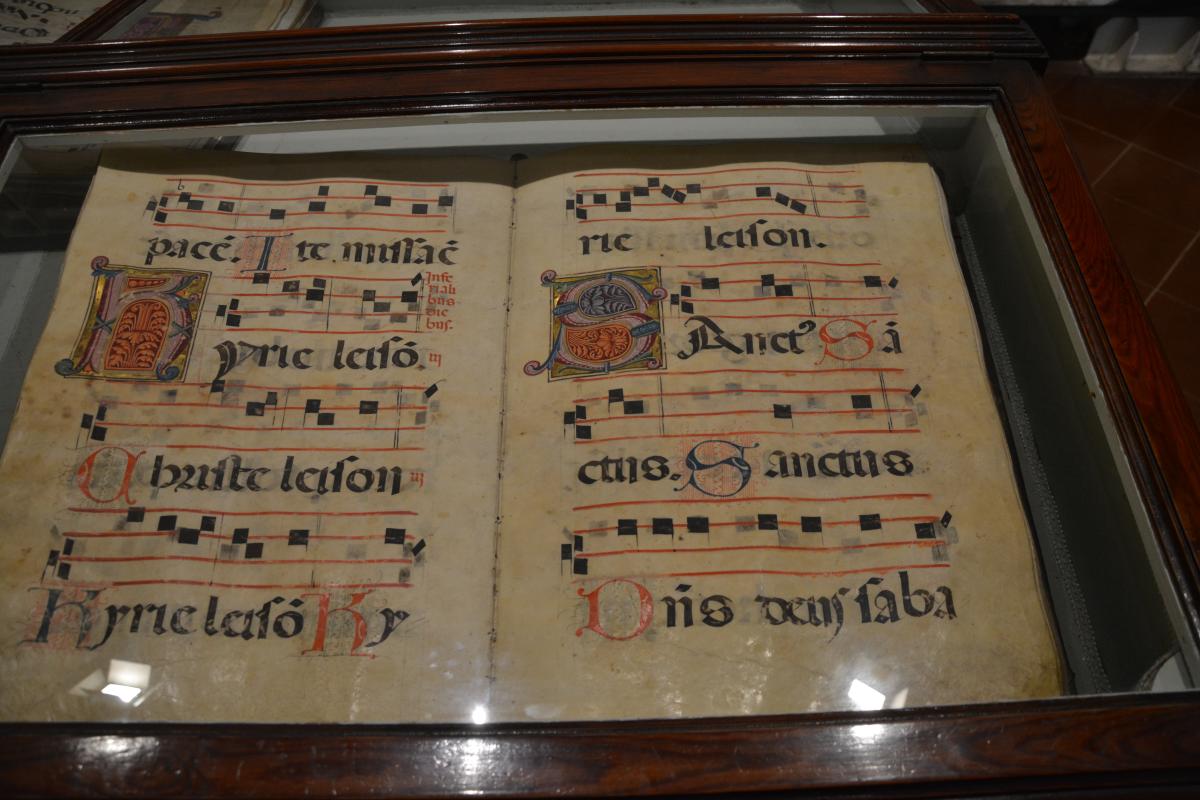 pacē. Ite missa ē
In fe
riali
bus
die
bus.
Kyrie leisō. iij
Christe leison iij
Kyrie leisō Ky
rie leison.
Sanctꝰ Sā
ctus. Sanctus
Dn̄s deus saba